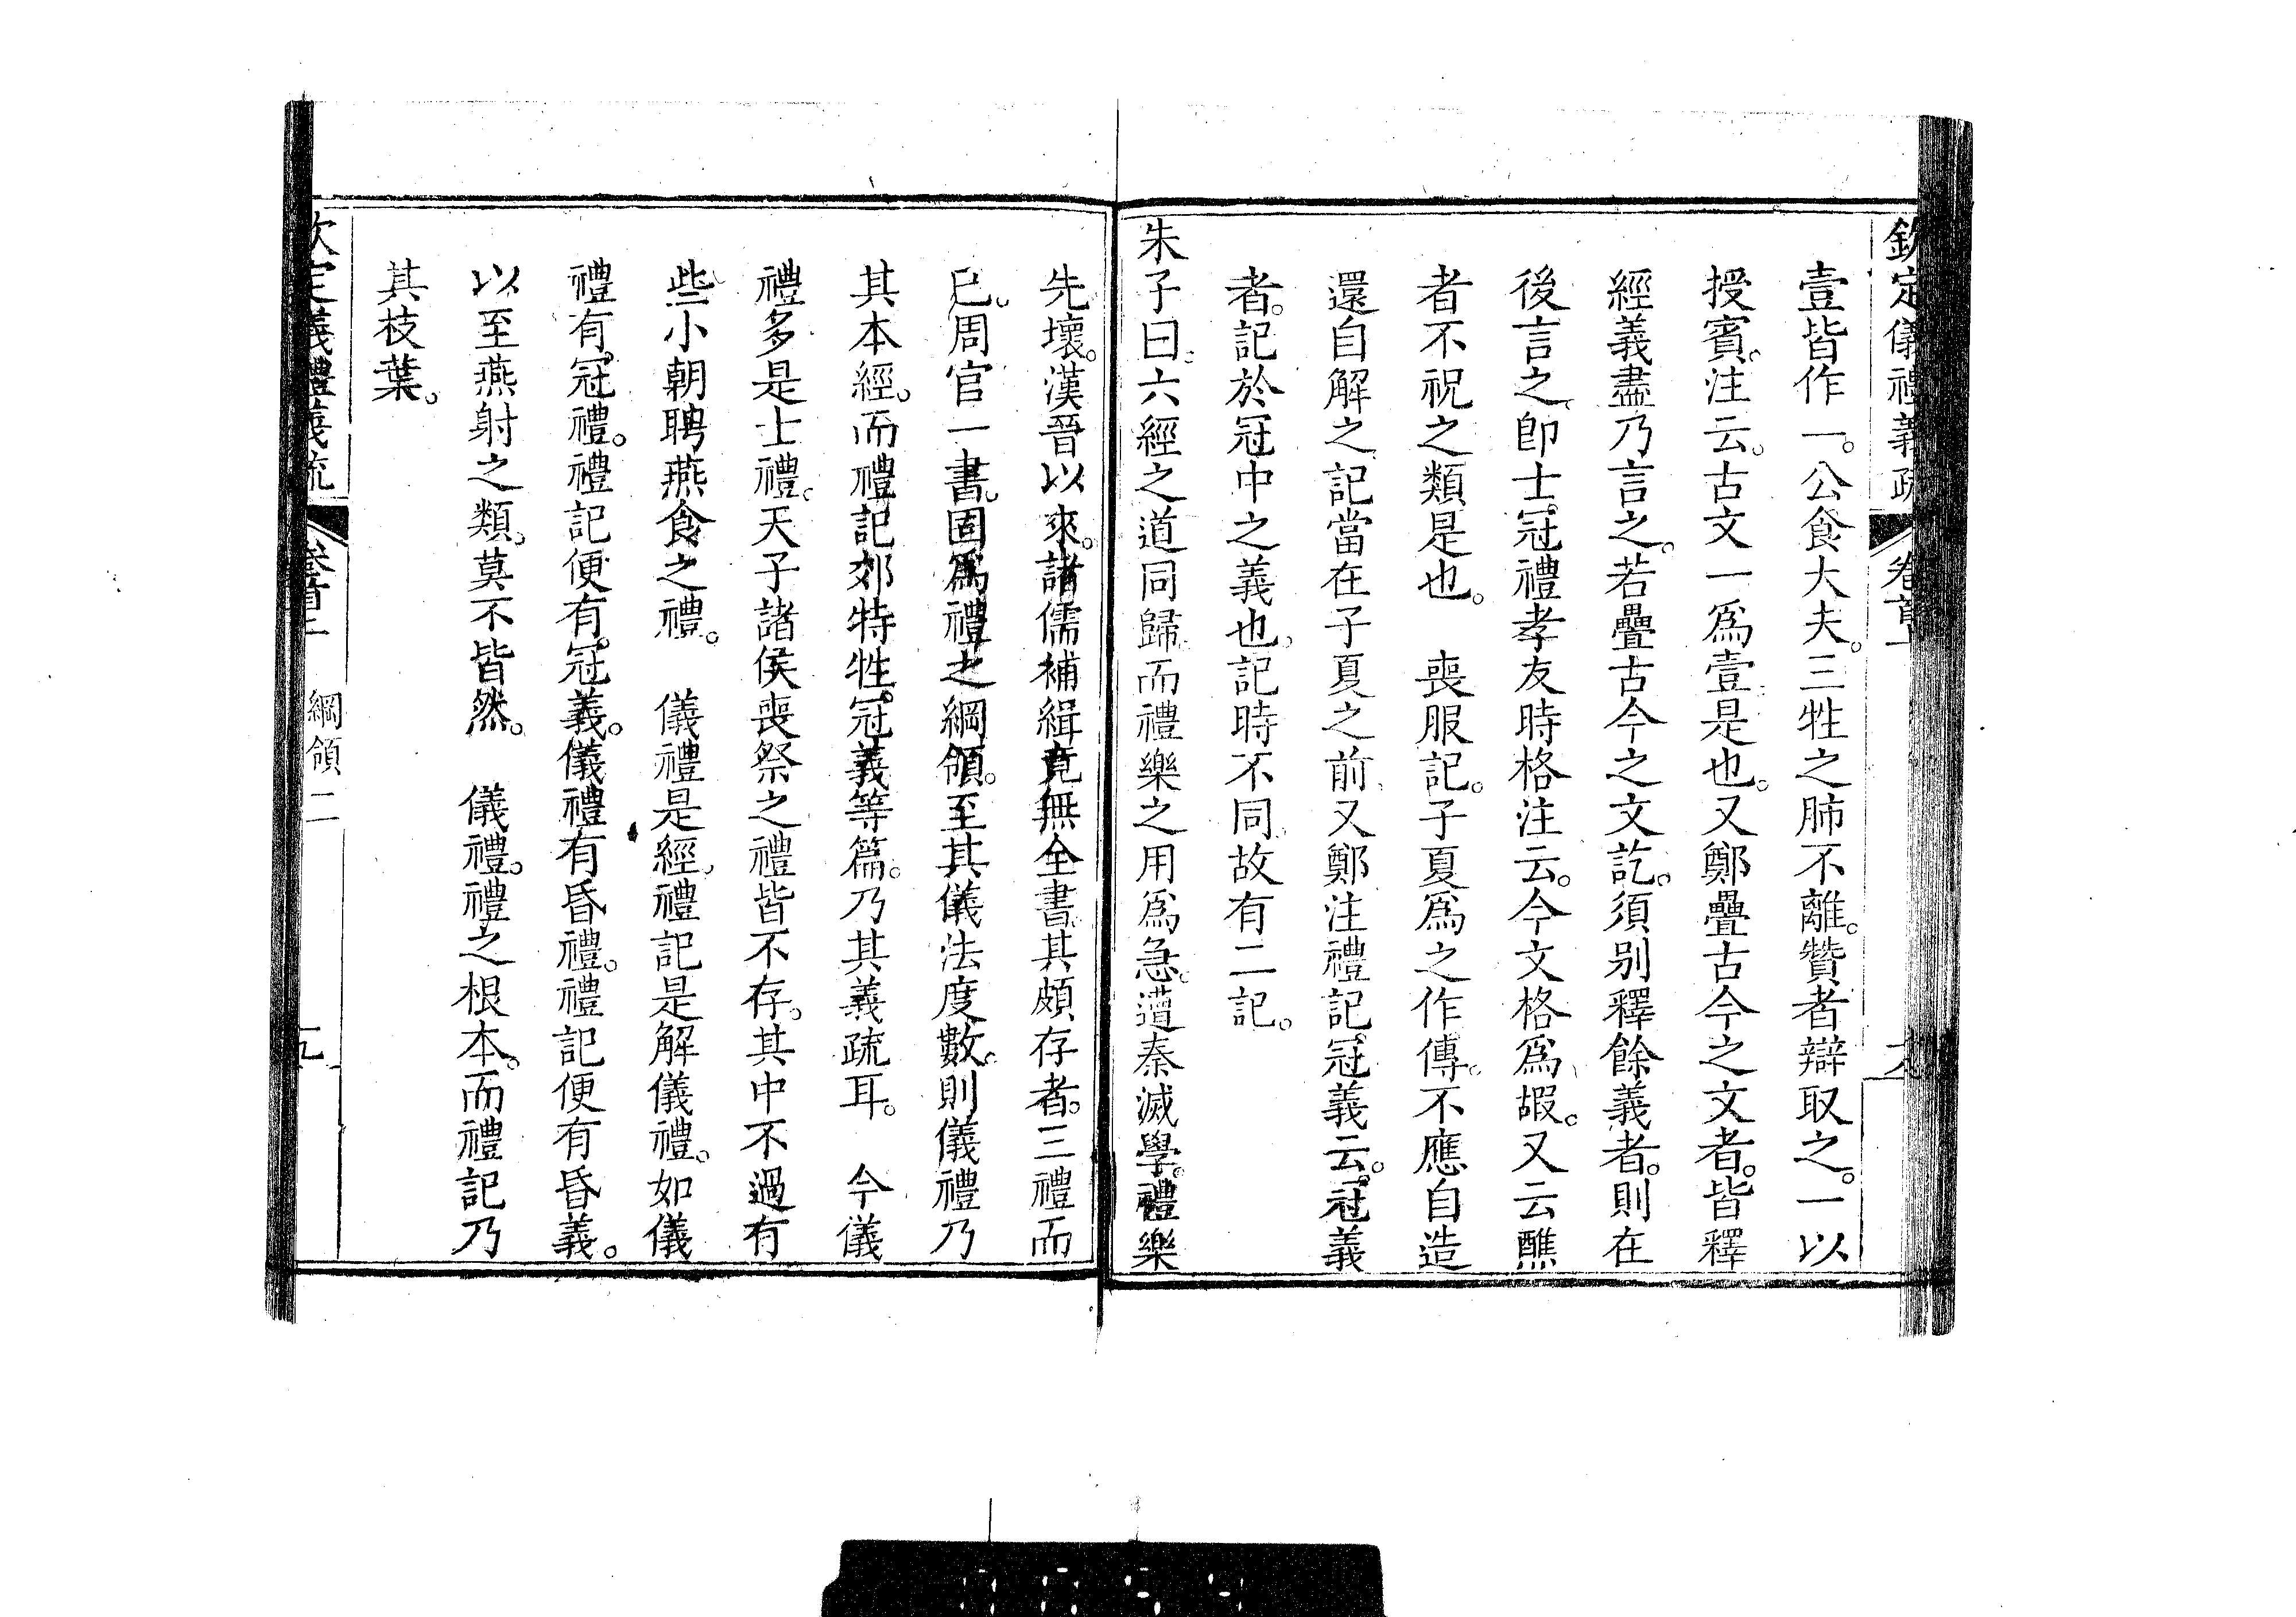 欽定儀禮義疏 卷首上
壹皆作一。公食大夫。三牲之肺不離。贊者辯取之。一以
授賓。注云。古文一爲壹是也。又鄭疊古今之文者。皆釋
經義盡乃言之。若疊古今之文訖。須别釋餘義者。則在
後言之。卽士冠禮孝友時格注云。今文格爲嘏。又云醮
者不祝之類是也。 喪服記。子夏爲之作傳。不應自造
還自解之。記當在子夏之前。又鄭注禮記。冠義云。冠義
者。記於冠中之義也。記時不同。故有二記。
朱子曰。六經之道同歸。而禮樂之用爲急。遭秦滅學。禮樂
先壞。漢晉以來。諸儒補緝。竟無全書。其頗存者。三禮而
已。周官一書。固爲禮之綱領。至其儀法度數。則儀禮乃
其本經。而禮記郊特牲。冠義等篇。乃其義疏耳。 今儀
禮多是士禮。天子諸侯喪祭之禮皆不存。其中不過有
些小朝聘燕食之禮。 儀禮是經。禮記是解儀禮。如儀
禮有冠禮。禮記便有冠義。儀禮有昏禮。禮記便有昏義。
以至燕射之類。莫不皆然。 儀禮。禮之根本。而禮記乃
其枝葉。
欽定儀禮義疏 卷首上 綱領二